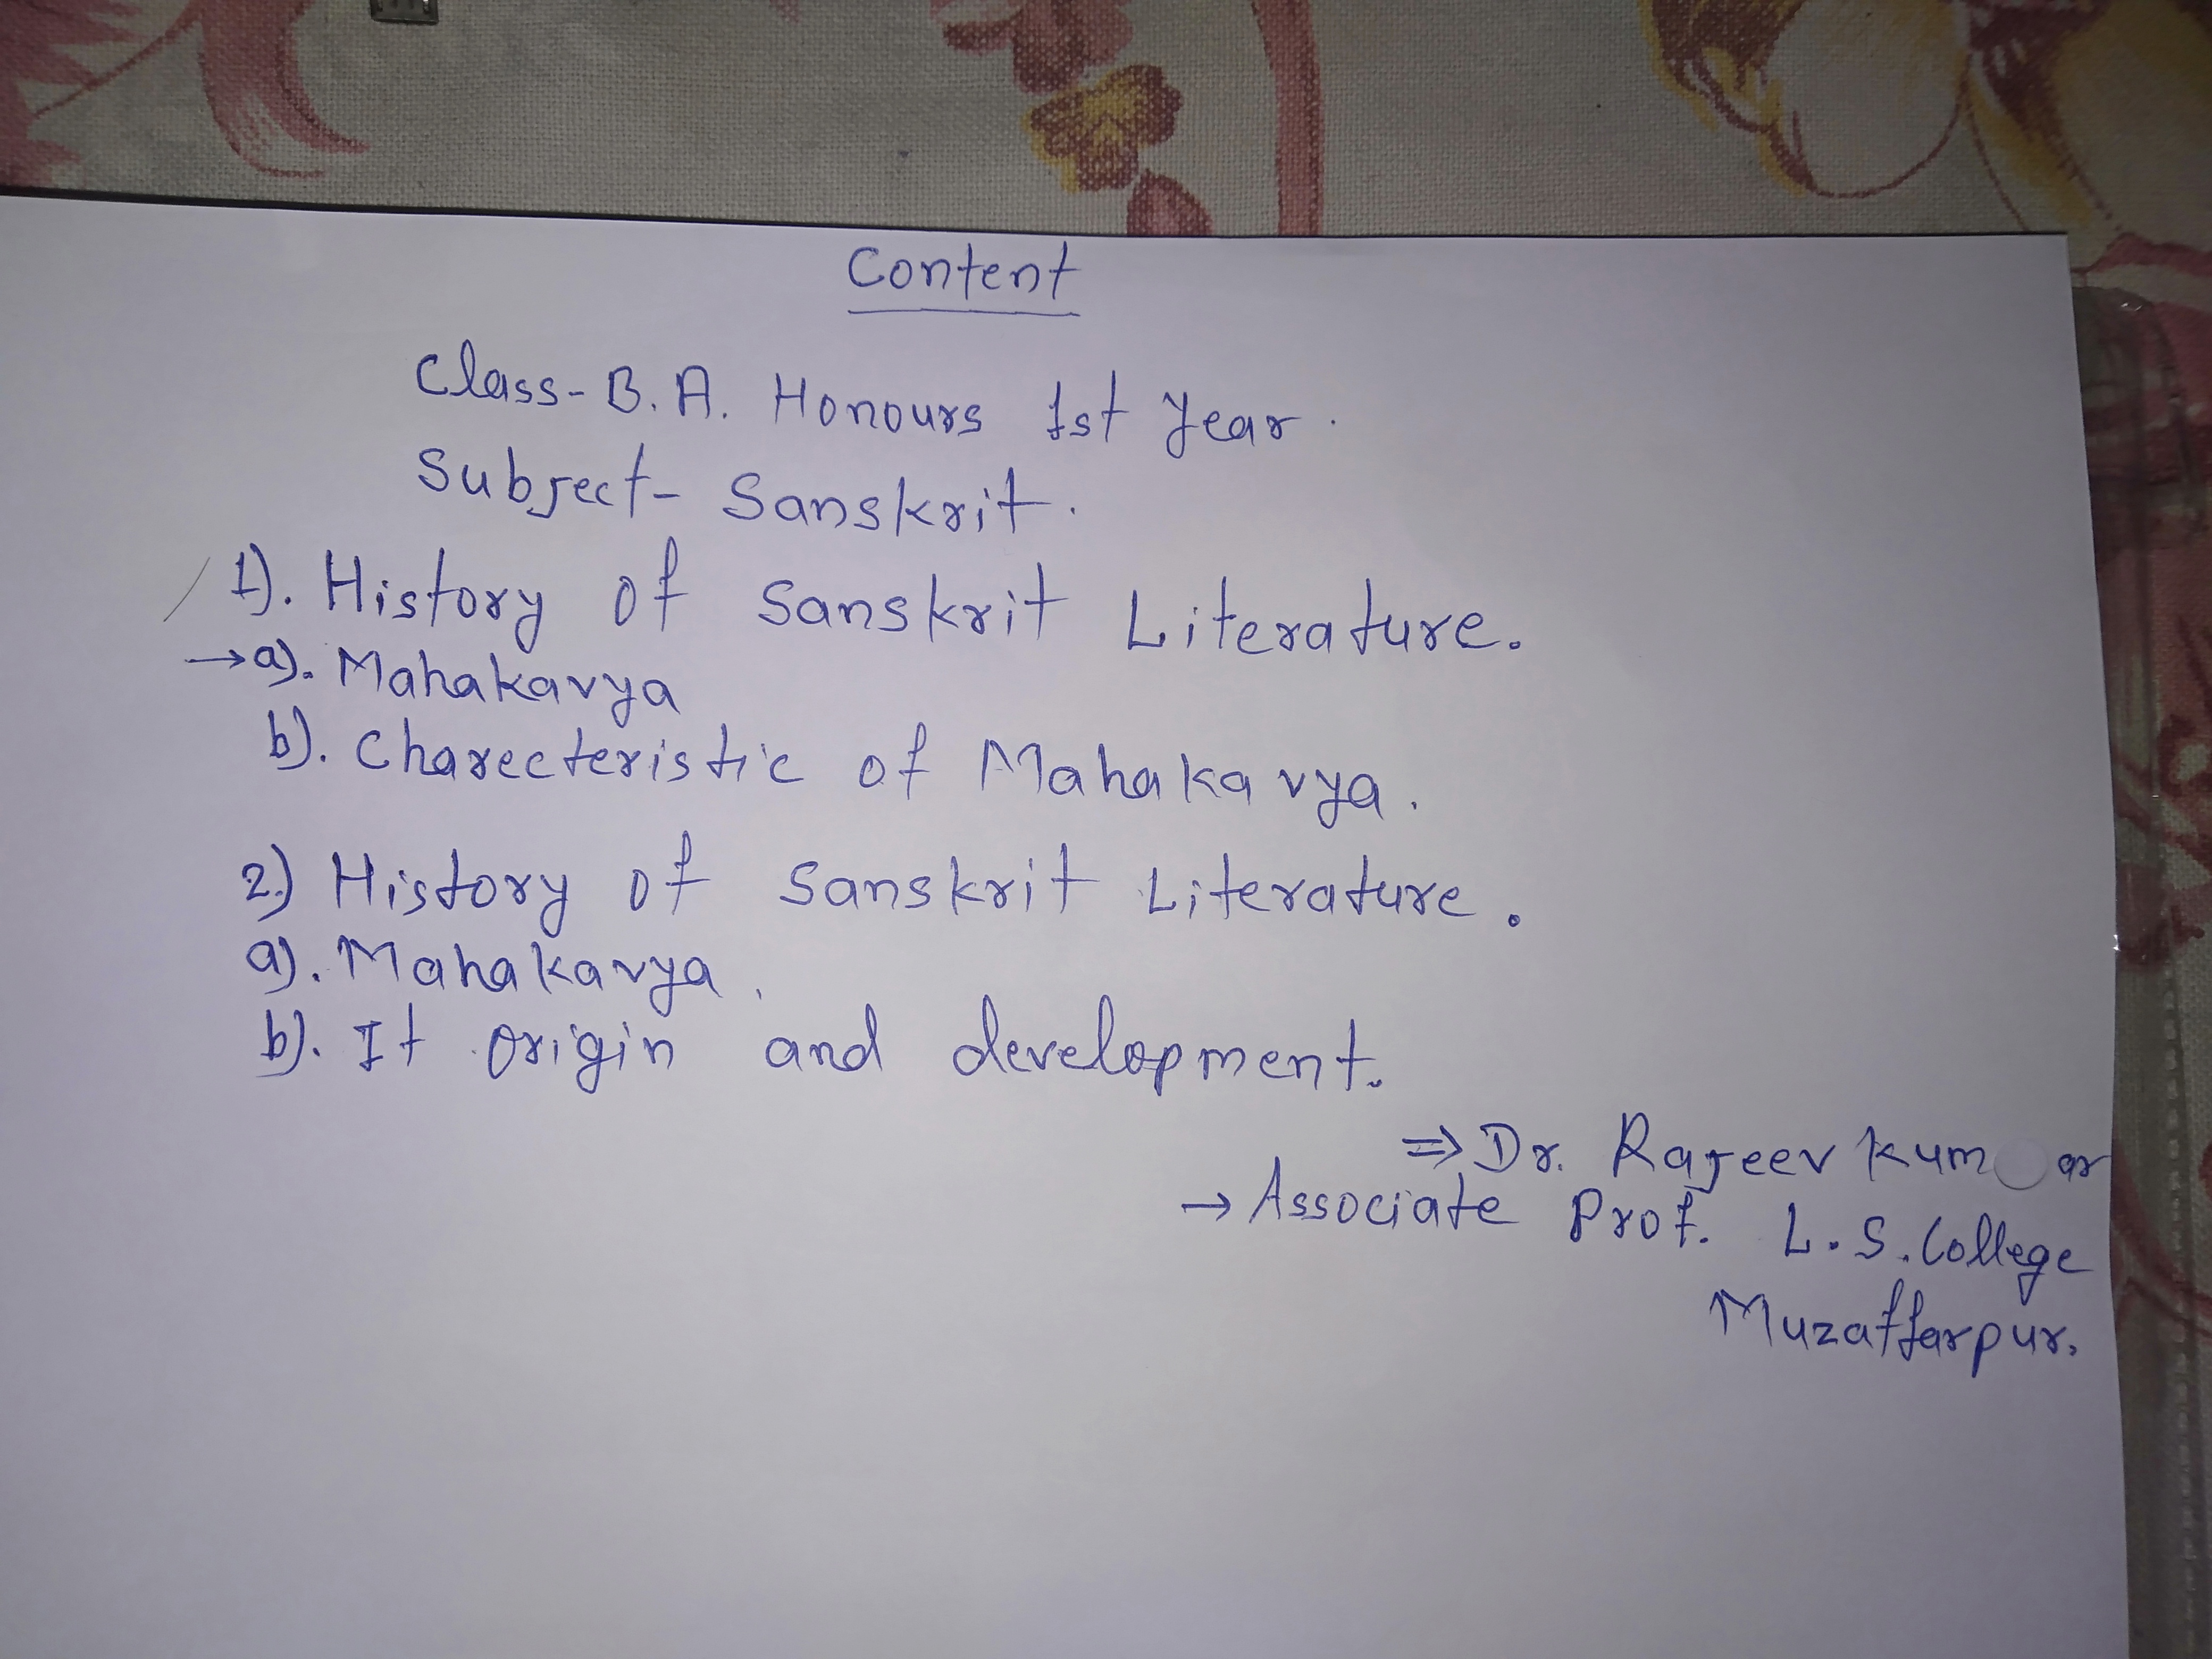 Content
Class-B.A. Honours 1st Year.
Subject- Sanskrit.
1). History of Sanskrit Literature.
→a). Mahakavya
b). Charecteristic of Mahakavya.
2.) History of Sanskrit Literature.
a). Mahakavya.
b). It origin and development.
⇒ Dr. Rajeev Kumar
→ Associate Prof. L.S. College
Muzaffarpur.